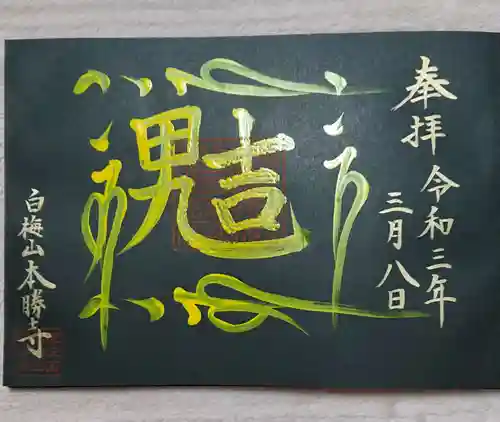 奉拝
令和三年
三月八日
白梅山本勝寺